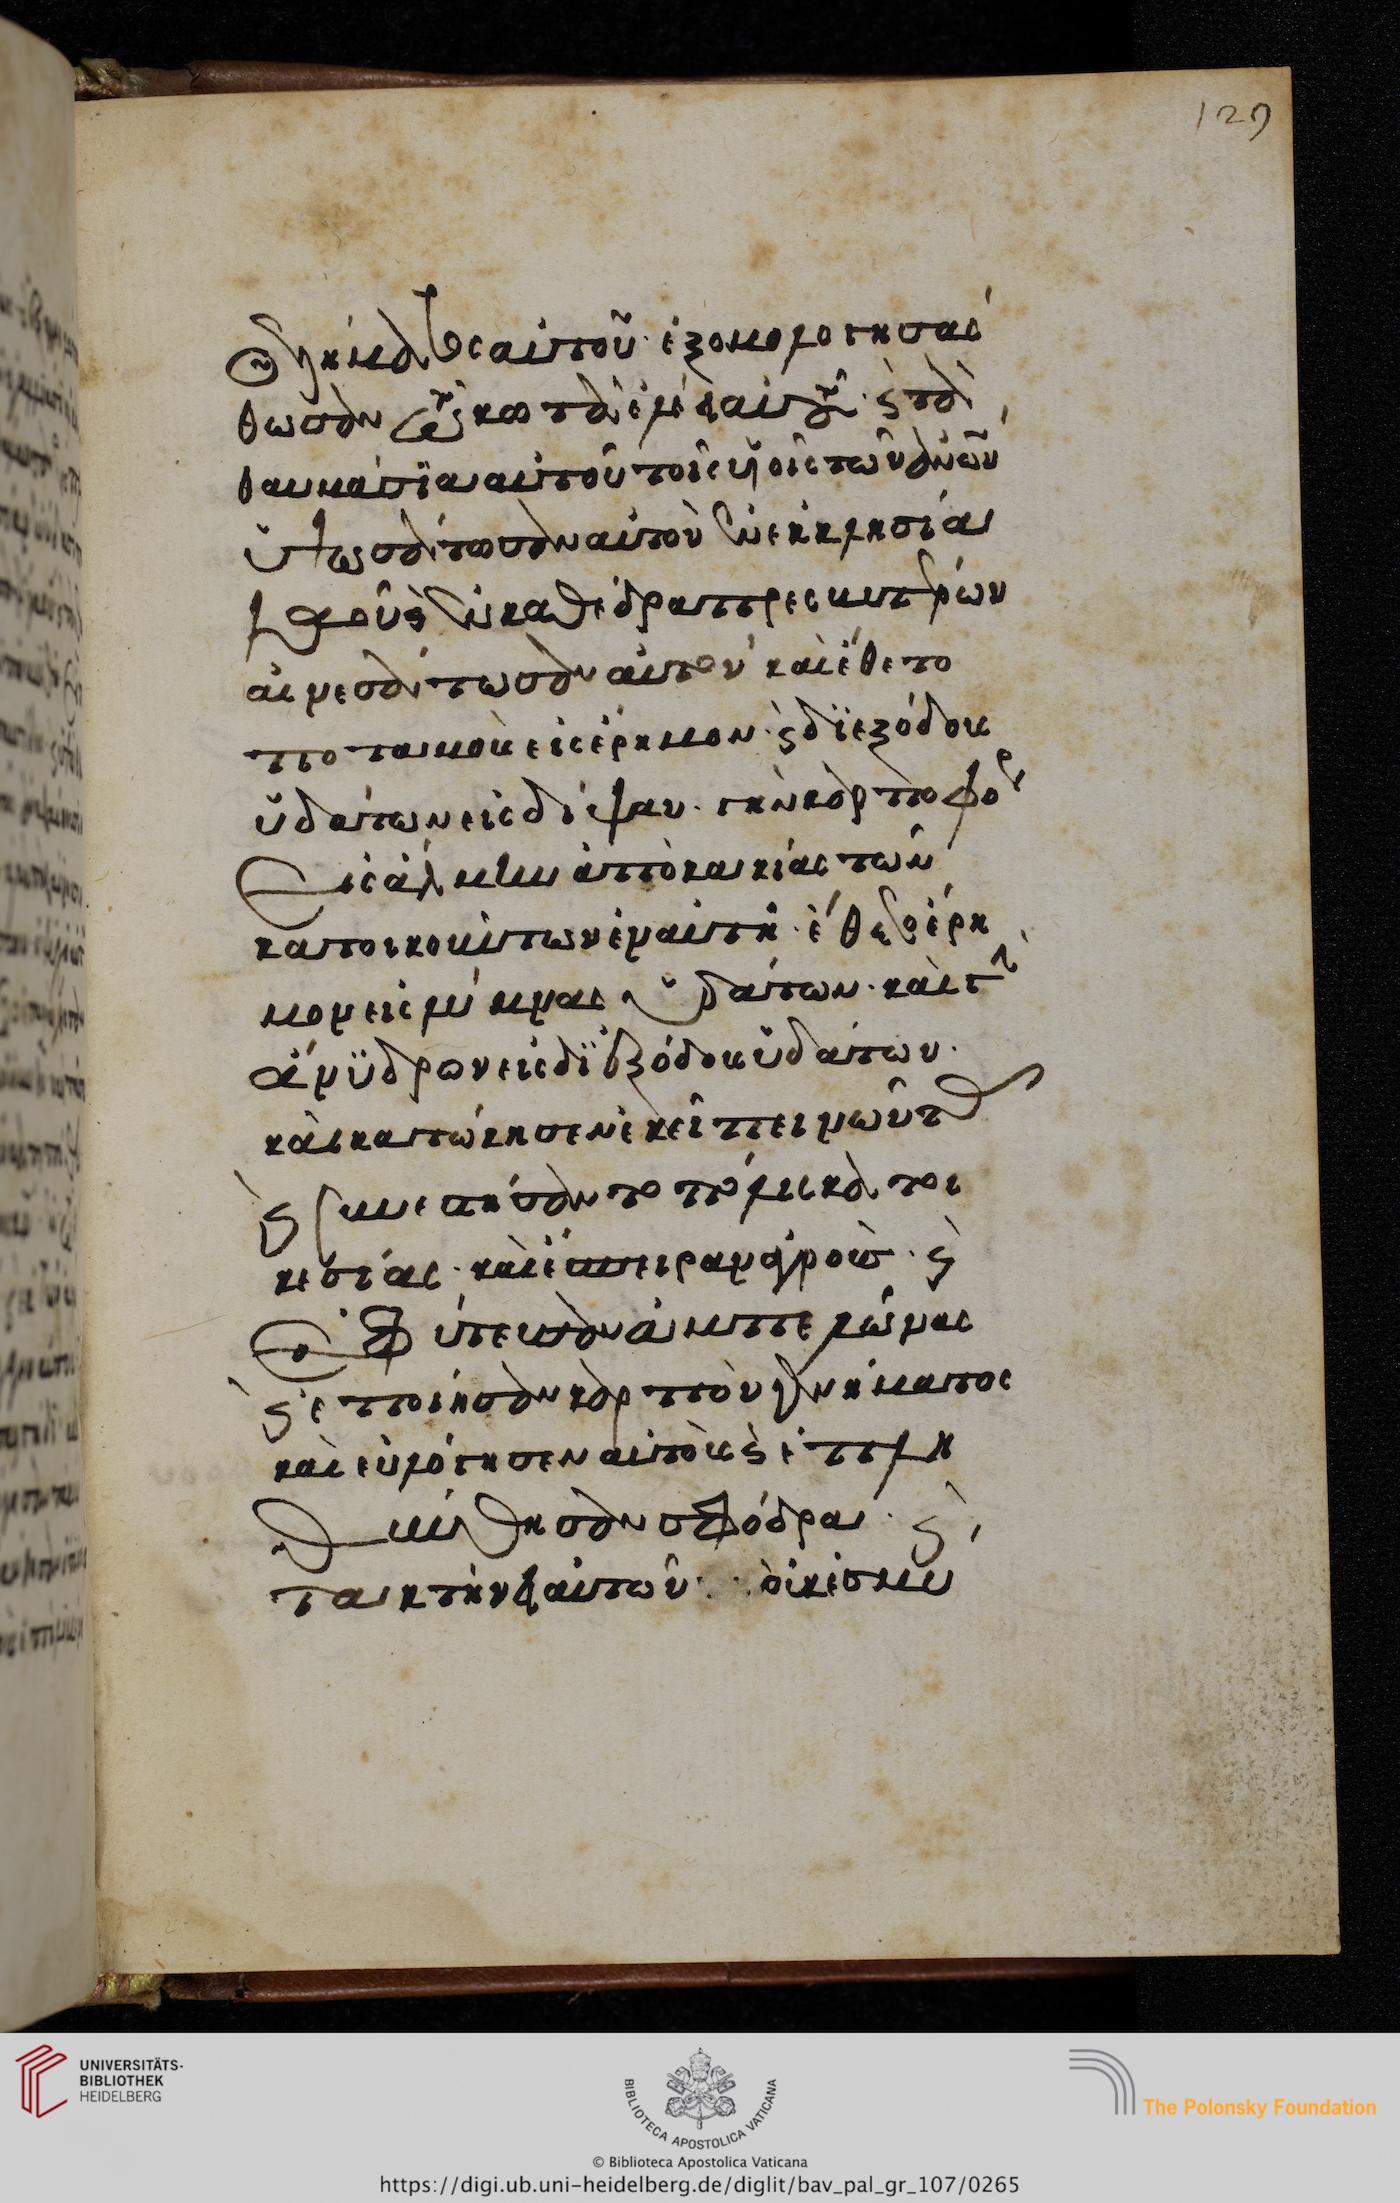 129
τὰ κύματα αὐτοῦ· ἐξομολογησάσ
θωσαν τῷ κω τὰ ἐλέη αὐτοῦ· ϛ τὰ
θαυμάσϊα αὐτοῦ τοῖς υἱοῖς τῶν ἀνῶν
ὑψωσάτωσαν αὐτὸν ἐν ἐκκλησίᾳ
λαοῦ ϛ ἐν καθέδρα πρεσβυτέρων
αἰνεσάτωσαν αὐτόν καὶ ἔθετο
ποταμοὺς εἰς ἔρημον· ϛ δϊεξόδους
ὑδάτων εἰς δίψαν· γῆν καρποφόρ
εἰς ἅλμην ἀπὸ κακίας τῶν
κατοικούντων ἐν αὐτῆ· ἔθετο ἔρη
μον εἰς λίμνας ὑδάτων· καὶ γῆν
ἄνϋδρον εἰς δϊεξόδους ὑδάτων·
καὶ κατώκησεν ἐκεῖ πεινῶντας
ϛ συνεστήσαντο πόλεις κατοι
κεσίας· καὶ ἔσπειραν ἀγροὺς· ϛ
ἐφύτευσαν ἀμπελῶνας
ϛ ἐποίησαν καρπὸν γεννήματος
καὶ εὐλόγησεν αὐτοὺς ϛ ἐπλη
θύνθησαν σφόδρα· ϛ
τα κτήνη αὐτῶν οὐκ ἐσμί
UNIVERSITÄTS-
BIBLIOTHEK
HEIDELBERG
BIBLIOTECA APOSTOLICA VATICANA
The Polonsky Foundation
© Biblioteca Apostolica Vaticana
https://digi.ub.uni-heidelberg.de/diglit/bav_pal_gr_107/0265